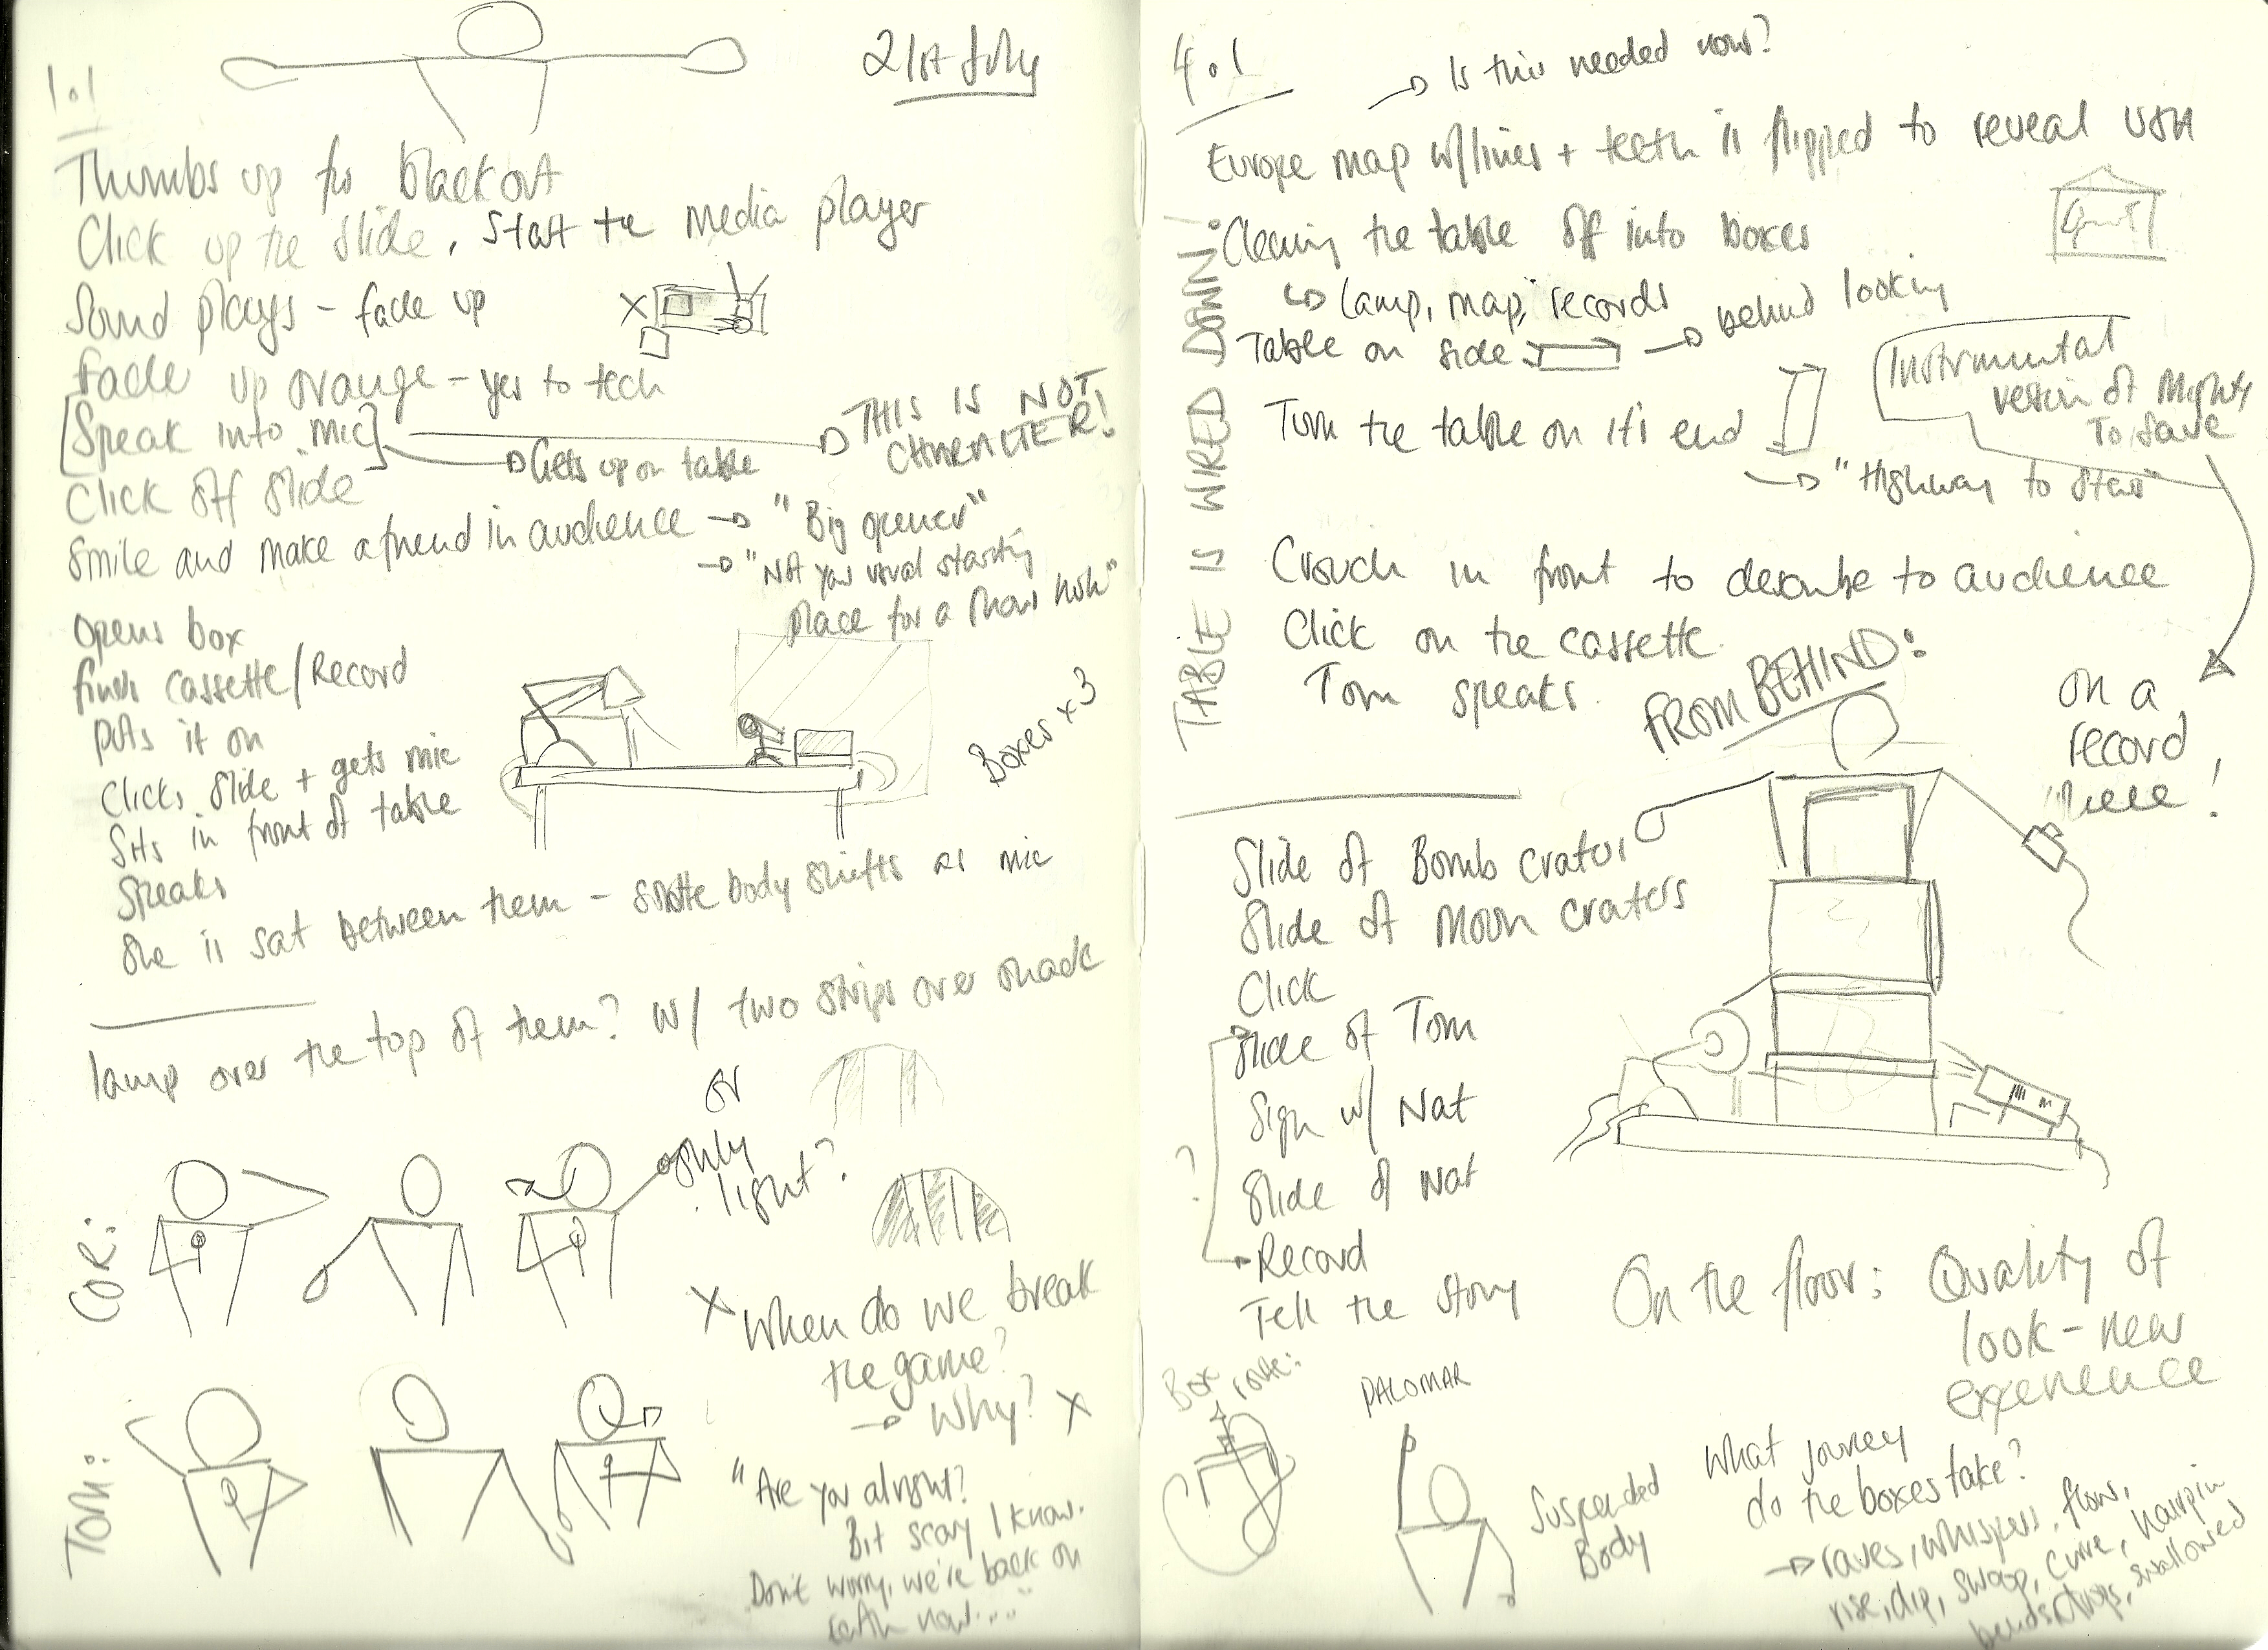 1.1
21st July
Thumbs up for blackout
Click up the slide. Start the media player
Sound plays - fade up
Fade up orange - yes to tech
[Speak into mic]
THIS IS NOT
CHARACTER!
Gets up on table
Click off slide
Smile and make a friend in audience → "Big opener"
→ "Not your usual starting
place for a show huh"
Opens box
finds cassette/Record
puts it on
Clicks slide + gets mic
Sits in front of table
Speaks
Boxes x3
She is sat between them - subtle body shifts as mic
lamp over the top of them? w/ two strips over shade
or
only
light?
COR:
X When do we break
the game?
→ Why? X
TOM:
"Are you alright?
Bit scary I know.
Don't worry, we're back on
earth now...."
4.1
→ Is this needed now?
Europe map w/lines + teeth is flipped to reveal USA
TABLE IS WIRED DOWN!
Clearing the table off into boxes
↳ lamp, map, records
Table on side → behind looking
Turn the table on it's end
Instrumental
version of Mighty
To Save
→ "Highway to Stars"
Crouch in front to describe to audience
Click on the cassette.
Tom speaks.
FROM BEHIND:
on a
record
here!
Slide of Bomb crater
Slide of Moon craters
Click
Slide of Tom
Sign w/ Nat
Slide of Nat
?
Record
Tell the story
On the floor: Quality of
look - new
experience
Box
route:
PALOMAR
Suspended
Body
What journey
do the boxes take?
→ raves, whispers, flow,
rise, dip, swoop, curve, hairpin
bends, drops, swallowed